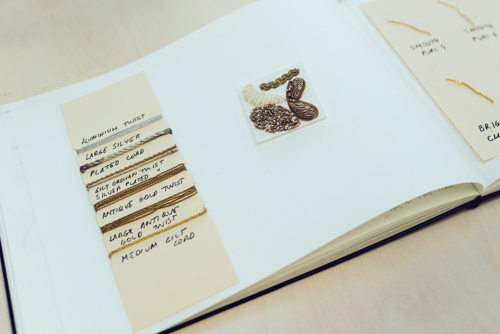 ALUMINIUM TWIST
LARGE SILVER
PLATED CORD
GILT GROIAN TWIST
SILVER PLATED "
ANTIQUE GOLD TWIST
LARGE ANTIQUE
GOLD TWIST
MEDIUM GILT
CORD
SMOOTH
PURL 6
SMOOTH
PURL 8